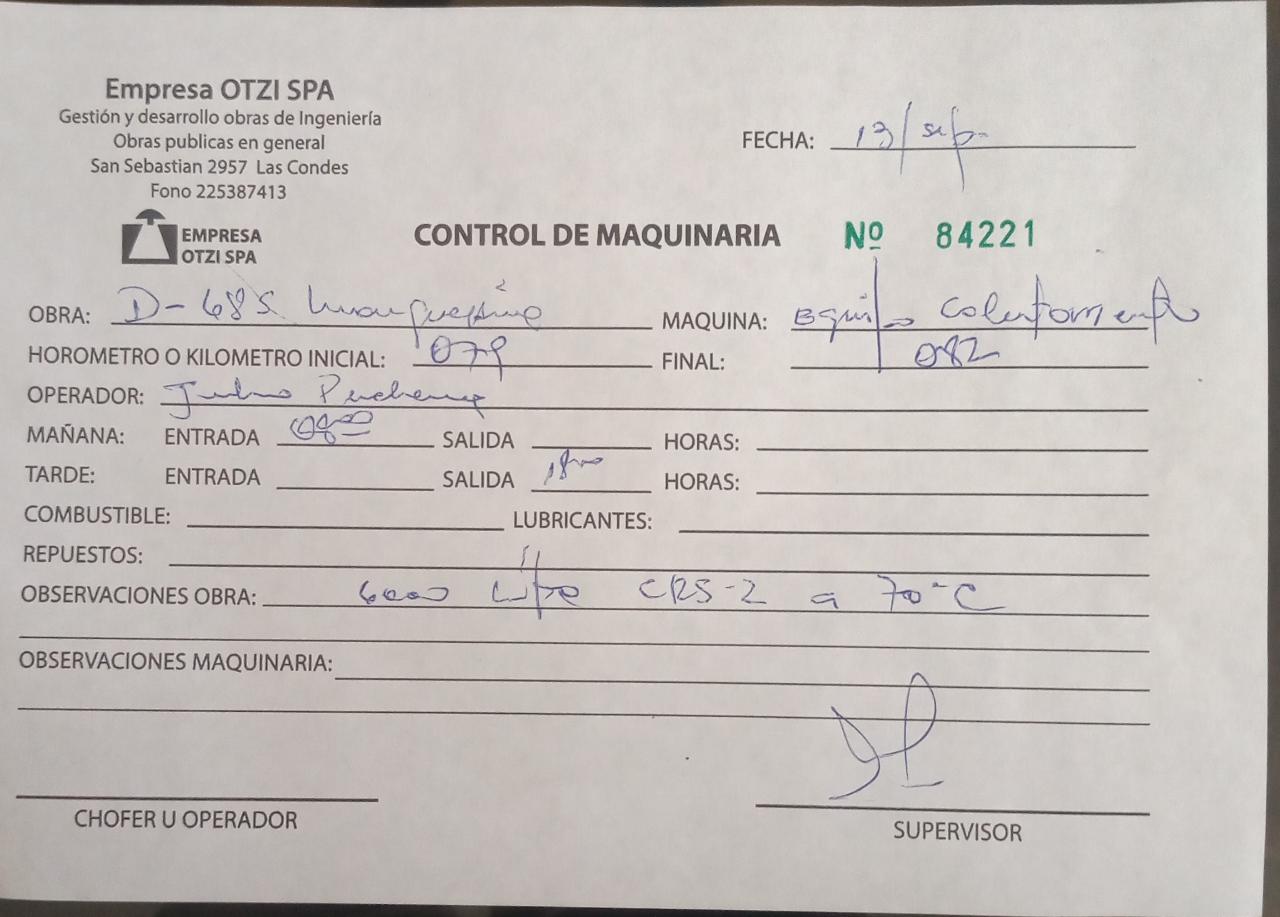 Empresa OTZI SPA
Gestión y desarrollo obras de Ingeniería
Obras publicas en general
San Sebastian 2957 Las Condes
Fono 225387413
FECHA: 13/sep.
EMPRESA
OTZI SPA
CONTROL DE MAQUINARIA Nº 84221
OBRA: D-685 MAQUINA: Equipo Calentamiento
HOROMETRO O KILOMETRO INICIAL: 079 FINAL: 082
OPERADOR: Julio
MAÑANA: ENTRADA 08:00 SALIDA HORAS:
TARDE: ENTRADA SALIDA 18:00 HORAS:
COMBUSTIBLE: LUBRICANTES:
REPUESTOS:
OBSERVACIONES OBRA: 6000 CRS-2 a 70°C
OBSERVACIONES MAQUINARIA:
CHOFER U OPERADOR
SUPERVISOR